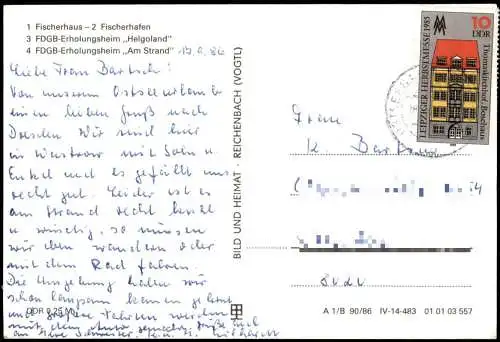 1 Fischerhaus – 2 Fischerhafen
3 FDGB-Erholungsheim „Helgoland"
4 FDGB-Erholungsheim „Am Strand"
Liebe Frau Bartsch!
Von unserem Ostseeurlaub
einen lieben Gruß nach
Dresden. Wir sind hier
in Wustrow mit Sohn u.
Enkel und es gefällt uns
recht gut. Leider ist es
am Strand recht
u. windig, so müssen
wir eben wandern oder
mit dem Rad fahren.
Die Umgebung haben wir
schon langsam kennen gelernt
und größere Fahrten werden
mit dem Auto gemacht. Grüße auch
an Ihre Schwester
DDR 0,25 M
BILD UND HEIMAT · REICHENBACH (VOGTL)
LEIPZIGER HERBSTMESSE 1985
10
DDR
Thomaskirchhof, Bosehaus
Frau
K.
A 1/B 90/86 IV-14-483 01 01 03 557